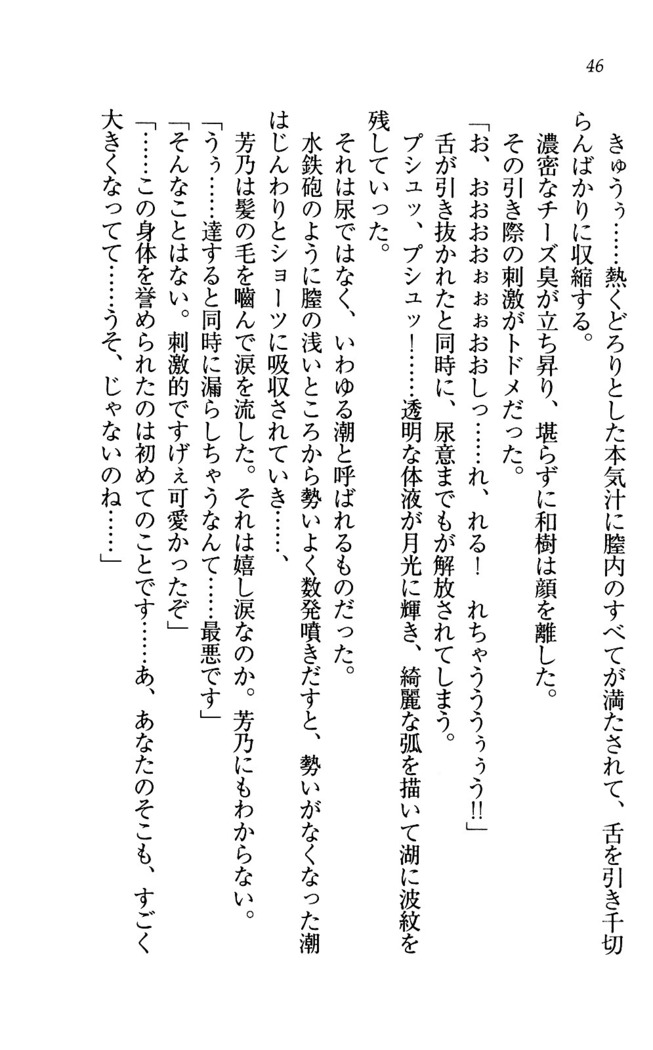 46
きゅうぅ……熱くどろりとした本気汁に膣内のすべてが満たされて、舌を引き千切
らんばかりに収縮する。
濃密なチーズ臭が立ち昇り、堪らずに和樹は顔を離した。
その引き際の刺激がトドメだった。
「お、おおおおぉぉぉおおしっ……れ、れる！　れちゃうううぅぅう!!」
舌が引き抜かれたと同時に、尿意までもが解放されてしまう。
プシュッ、プシュッ！……透明な体液が月光に輝き、綺麗な弧を描いて湖に波紋を
残していった。
それは尿ではなく、いわゆる潮と呼ばれるものだった。
水鉄砲のように膣の浅いところから勢いよく数発噴きだすと、勢いがなくなった潮
はじんわりとショーツに吸収されていき……、
芳乃は髪の毛を嚙んで涙を流した。それは嬉し涙なのか。芳乃にもわからない。
「うぅ……達すると同時に漏らしちゃうなんて……最悪です」
「そんなことはない。刺激的ですげぇ可愛かったぞ」
「……この身体を誉められたのは初めてのことです……あ、あなたのそこも、すごく
大きくなってて……うそ、じゃないのね……」